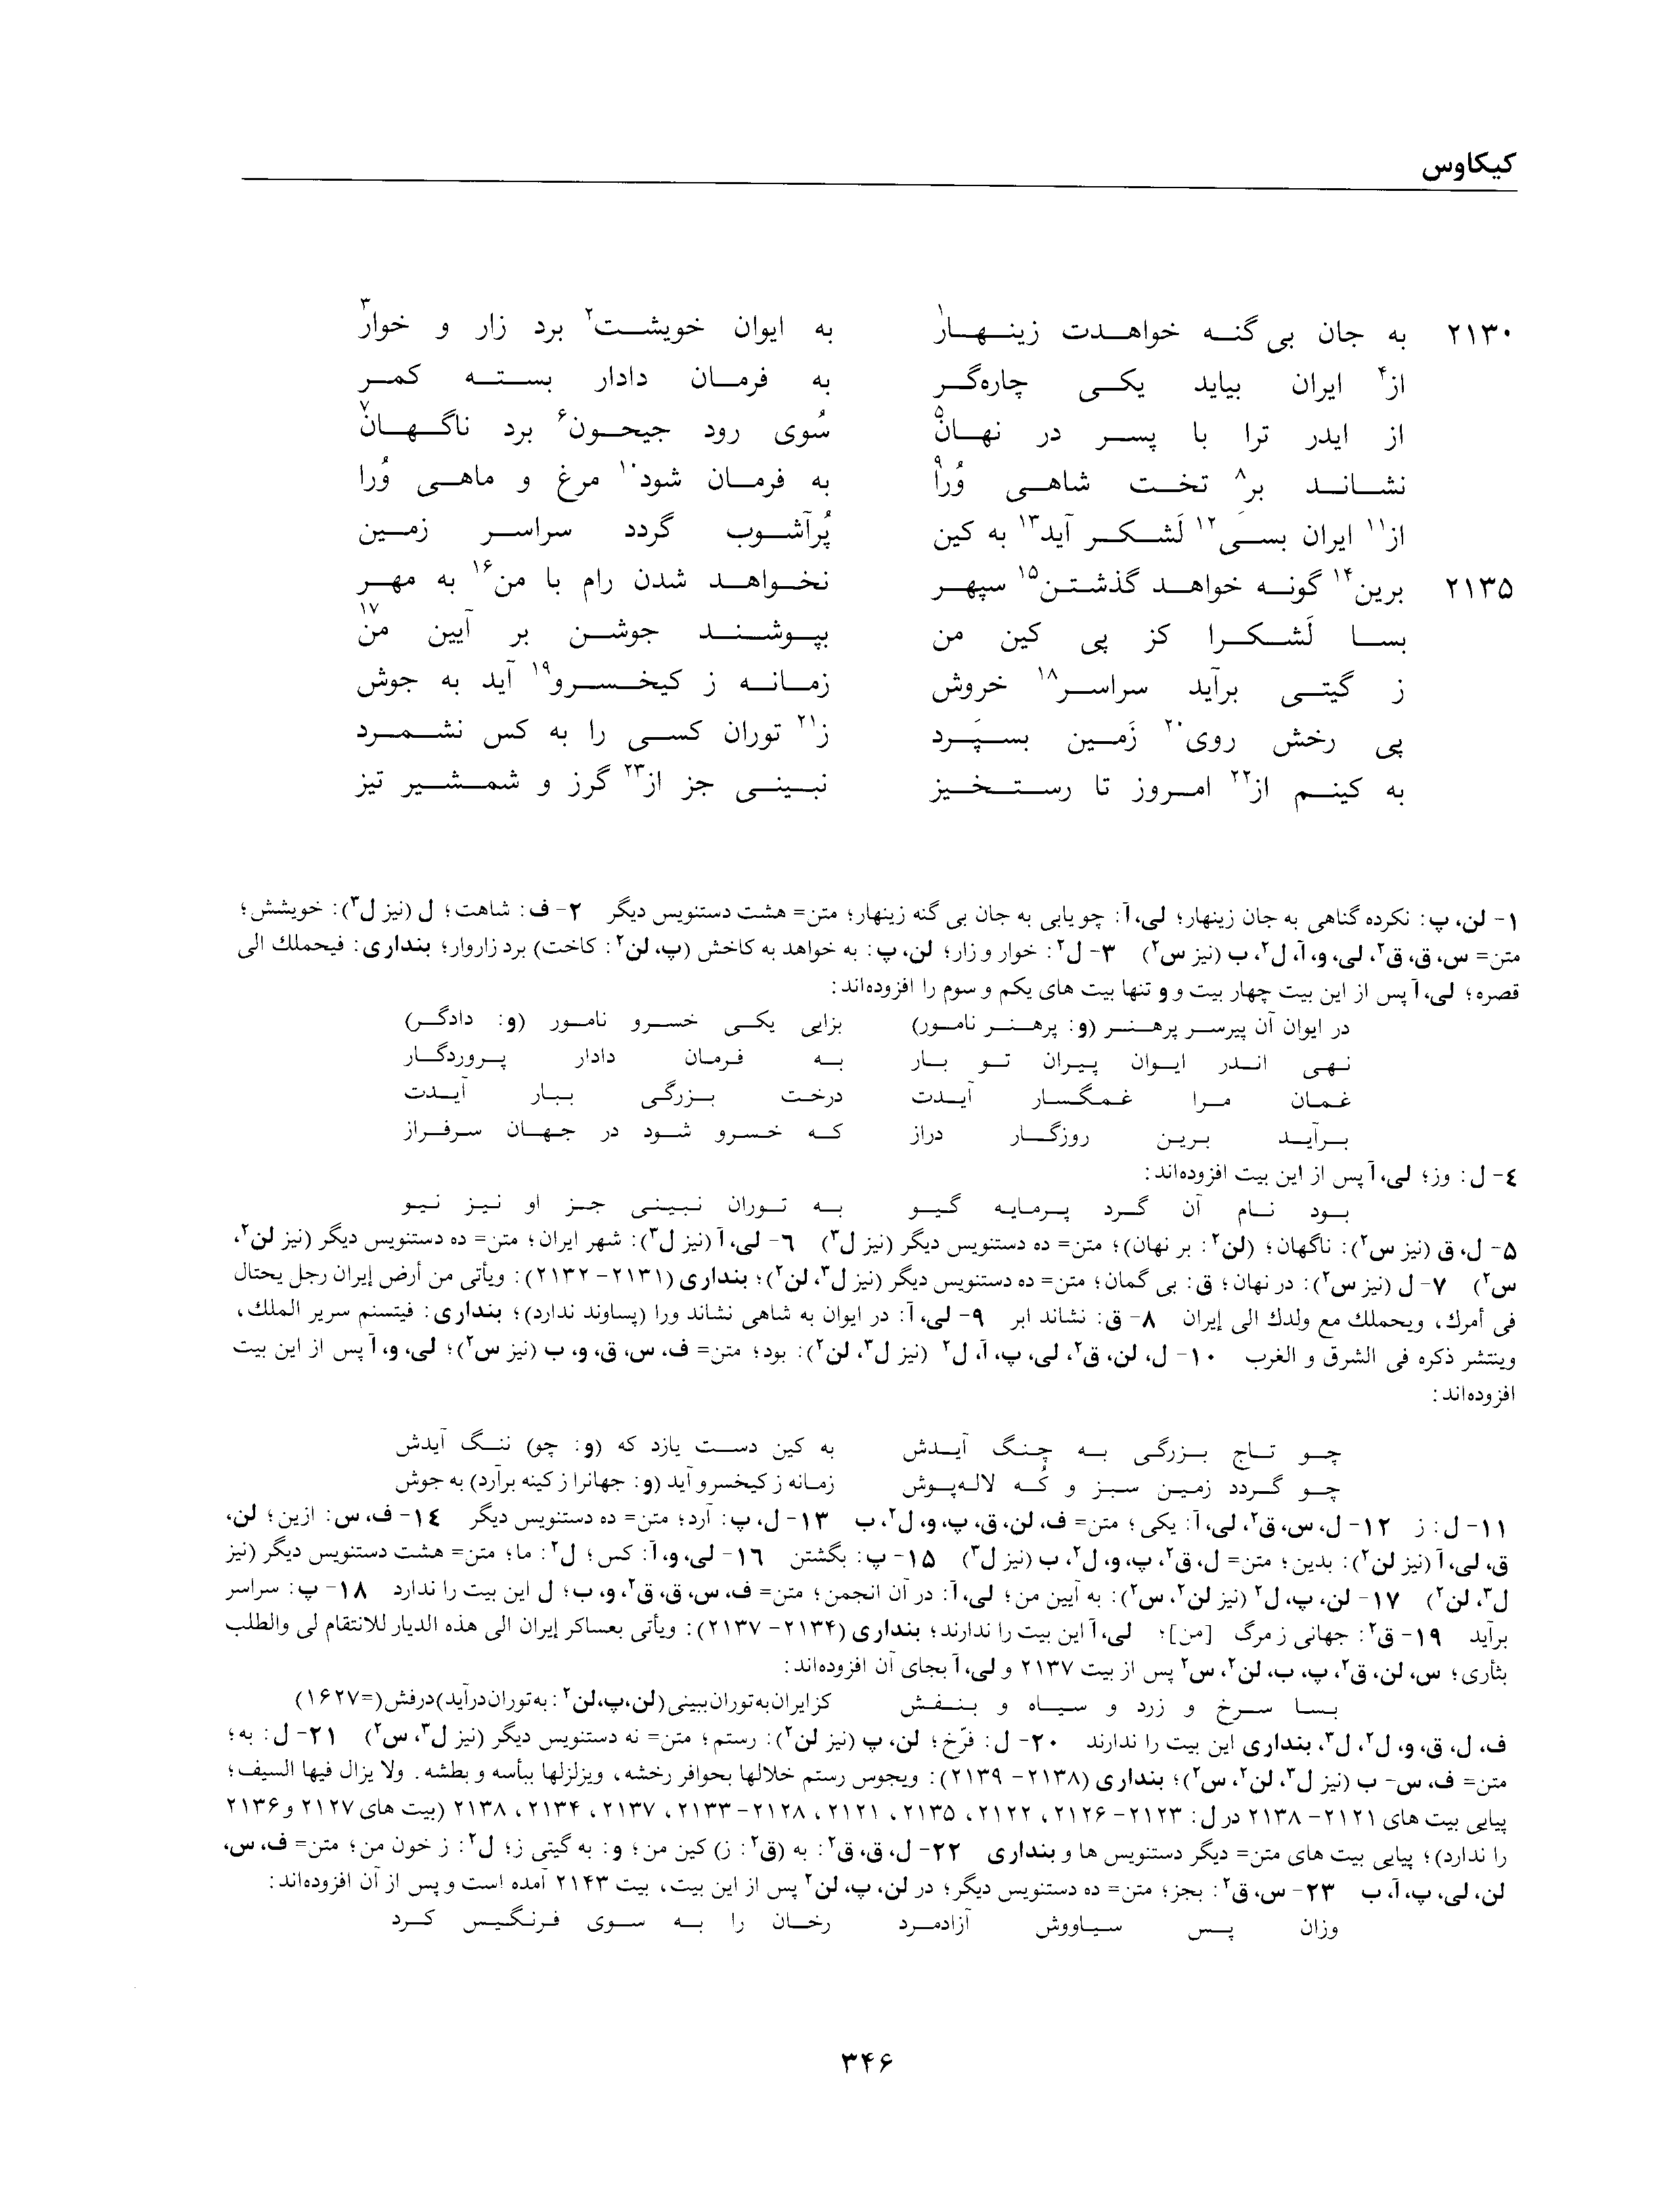 کیکاوس
۲۱۳۰ به جان بی گنه خواهدت زینهار۱ به ایوان خویشت۲ برد زار و خوار۳
از۴ ایران بیاید یکی چاره‌گر به فرمان دادار بسته کمر
از ایدر ترا با پسر در نهان۵ سُوی رود جیحون۶ برد ناگهان۷
نشاند بر۸ تخت شاهی وُرا۹ به فرمان شود۱۰ مرغ و ماهی وُرا
از۱۱ ایران بسی۱۲ لَشکر آید۱۳ به کین پُرآشوب گردد سراسر زمین
۲۱۳۵ برین۱۴ گونه خواهد گذشتن۱۵ سپهر نخواهد شدن رام با من۱۶ به مهر
بسا لَشکرا کز پی کین من بپوشند جوشن بر آیین من۱۷
ز گیتی برآید سراسر۱۸ خروش زمانه ز کیخسرو۱۹ آید به جوش
پی رخش روی۲۰ زَمین بسپَرد ز۲۱ توران کسی را به کس نشمرد
به کینم از۲۲ امروز تا رستخیز نبینی جز از۲۳ گرز و شمشیر تیز
۱- لن، پ: نکرده گناهی به جان زینهار؛ لی، آ: چو یابی به جان بی گنه زینهار؛ متن= هشت دستنویس دیگر ۲- ف: شاهت؛ ل (نیز ل۳): خویشش؛
متن= س، ق، ق۲، لی، و، آ، ل۲، ب (نیز س۲) ۳- ل۲: خوار و زار؛ لن، پ: به خواهد به کاخش (پ، لن۲: کاخت) برد زاروار؛ بنداری: فیحملك الی
قصره؛ لی، آ پس از این بیت چهار بیت و و تنها بیت های یکم و سوم را افزوده‌اند:
در ایوان آن پیرسر پرهنر (و: پرهنر نامور) بزایی یکی خسرو نامور (و: دادگر)
نهی اندر ایوان پیران تو بار به فرمان دادار پروردگار
غمان مرا غمگسار آیدت درخت بزرگی ببار آیدت
برآید برین روزگار دراز که خسرو شود در جهان سرفراز
٤- ل: وز؛ لی، آ پس از این بیت افزوده‌اند:
بود نام آن گرد پرمایه گیو به توران نبینی جز او نیز نیو
۵- ل، ق (نیز س۲): ناگهان؛ (لن۲: بر نهان)؛ متن= ده دستنویس دیگر (نیز ل۳) ٦- لی، آ (نیز ل۳): شهر ایران؛ متن= ده دستنویس دیگر (نیز لن۲،
س۲) ۷- ل (نیز س۲): در نهان؛ ق: بی گمان؛ متن= ده دستنویس دیگر (نیز ل۳، لن۲)؛ بنداری (۲۱۳۱- ۲۱۳۲): ویأتی من أرض إیران رجل یحتال
فی أمرك، ویحملك مع ولدك الی إیران ۸- ق: نشاند ابر ۹- لی، آ: در ایوان به شاهی نشاند ورا (پساوند ندارد)؛ بنداری: فیتسنم سریر الملك،
وینتشر ذکره فی الشرق و الغرب ۱۰- ل، لن، ق۲، لی، پ، آ، ل۲ (نیز ل۳، لن۲): بود؛ متن= ف، س، ق، و، ب (نیز س۲)؛ لی، و، آ پس از این بیت
افزوده‌اند:
چو تاج بزرگی به چنگ آیدش به کین دست یازد که (و: چو) ننگ آیدش
چو گردد زمین سبز و کُه لاله‌پوش زمانه ز کیخسرو آید (و: جهانرا ز کینه برآرد) به جوش
۱۱- ل: ز ۱۲- ل، س، ق۲، لی، آ: یکی؛ متن= ف، لن، ق، پ، و، ل۲، ب ۱۳- ل، پ: آرد؛ متن= ده دستنویس دیگر ۱٤- ف، س: ازین؛ لن،
ق، لی، آ (نیز لن۲): بدین؛ متن= ل، ق۲، پ، و، ل۲، ب (نیز ل۳) ۱۵- پ: بگشتن ۱٦- لی، و، آ: کس؛ ل۲: ما؛ متن= هشت دستنویس دیگر (نیز
ل۳، لن۲) ۱۷- لن، پ، ل۲ (نیز لن۲، س۲): به آیین من؛ لی، آ: در آن انجمن؛ متن= ف، س، ق، ق۲، و، ب؛ ل این بیت را ندارد ۱۸- پ: سراسر
برآید ۱۹- ق۲: جهانی ز مرگ [من]؛ لی، آ این بیت را ندارند؛ بنداری (۲۱۳۴- ۲۱۳۷): ویأتی بعساکر إیران الی هذه الدیار للانتقام لی والطلب
بثأری؛ س، لن، ق۲، پ، ب، لن۲، س۲ پس از بیت ۲۱۳۷ و لی، آ بجای آن افزوده‌اند:
بسا سرخ و زرد و سیاه و بنفش کز ایران به توران ببینی (لن، پ، لن۲: به توران درآید) درفش (=۱۶۲۷)
ف، ل، ق، و، ل۲، ل۳، بنداری این بیت را ندارند ۲۰- ل: فرّخ؛ لن، پ (نیز لن۲): رستم؛ متن= نه دستنویس دیگر (نیز ل۳، س۲) ۲۱- ل: به؛
متن= ف، س- ب (نیز ل۳، لن۲، س۲)؛ بنداری (۲۱۳۸- ۲۱۳۹): ویجوس رستم خلالها بحوافر رخشه، ویزلزلها ببأسه و بطشه. ولا یزال فیها السیف؛
پیایی بیت های ۲۱۲۱- ۲۱۳۸ در ل: ۲۱۲۳- ۲۱۲۶، ۲۱۲۲، ۲۱۳۵، ۲۱۲۱، ۲۱۲۸- ۲۱۳۳، ۲۱۳۷، ۲۱۳۴، ۲۱۳۸ (بیت های ۲۱۲۷ و ۲۱۳۶
را ندارد)؛ پیایی بیت های متن= دیگر دستنویس ها و بنداری ۲۲- ل، ق، ق۲: به (ق۲: ز) کین من؛ و: به گیتی ز؛ ل۲: ز خون من؛ متن= ف، س،
لن، لی، پ، آ، ب ۲۳- س، ق۲: بجز؛ متن= ده دستنویس دیگر؛ در لن، پ، لن۲ پس از این بیت، بیت ۲۱۴۳ آمده است و پس از آن افزوده‌اند:
وزان پس سیاووش آزادمرد رخان را به سوی فرنگیس کرد
۳۴۶